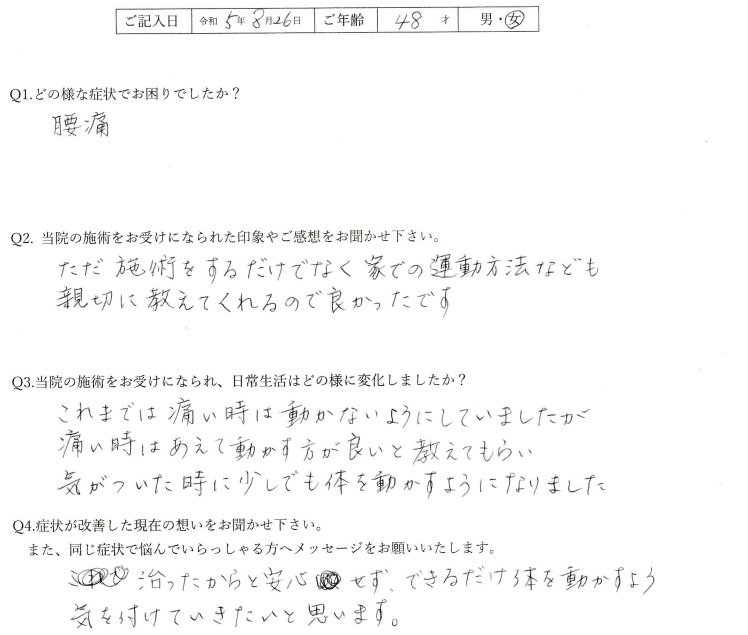 ご記入日 令和 5年 8月26日 ご年齢 48 才 男・女
Q1.どの様な症状でお困りでしたか？
腰痛
Q2. 当院の施術をお受けになられた印象やご感想をお聞かせ下さい。
ただ 施術をするだけでなく 家での運動方法なども
親切に教えてくれるので良かったです
Q3.当院の施術をお受けになられ、日常生活はどの様に変化しましたか？
これまでは痛い時は動かないようにしていましたが
痛い時はあえて動かす方が良いと教えてもらい
気がついた時に少しでも体を動かすようになりました
Q4.症状が改善した現在の想いをお聞かせ下さい。
また、同じ症状で悩んでいらっしゃる方へメッセージをお願いいたします。
治ったからと安心せず、できるだけ体を動かすよう
気を付けていきたいと思います。